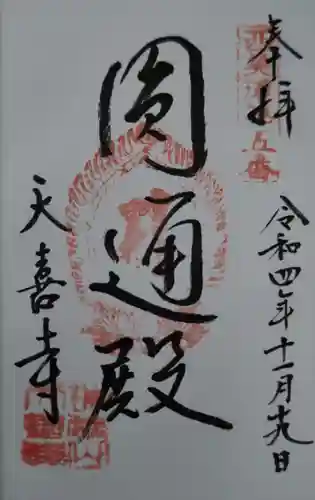 奉拝
五番
令和四年十一月十九日
圓通殿
天喜寺